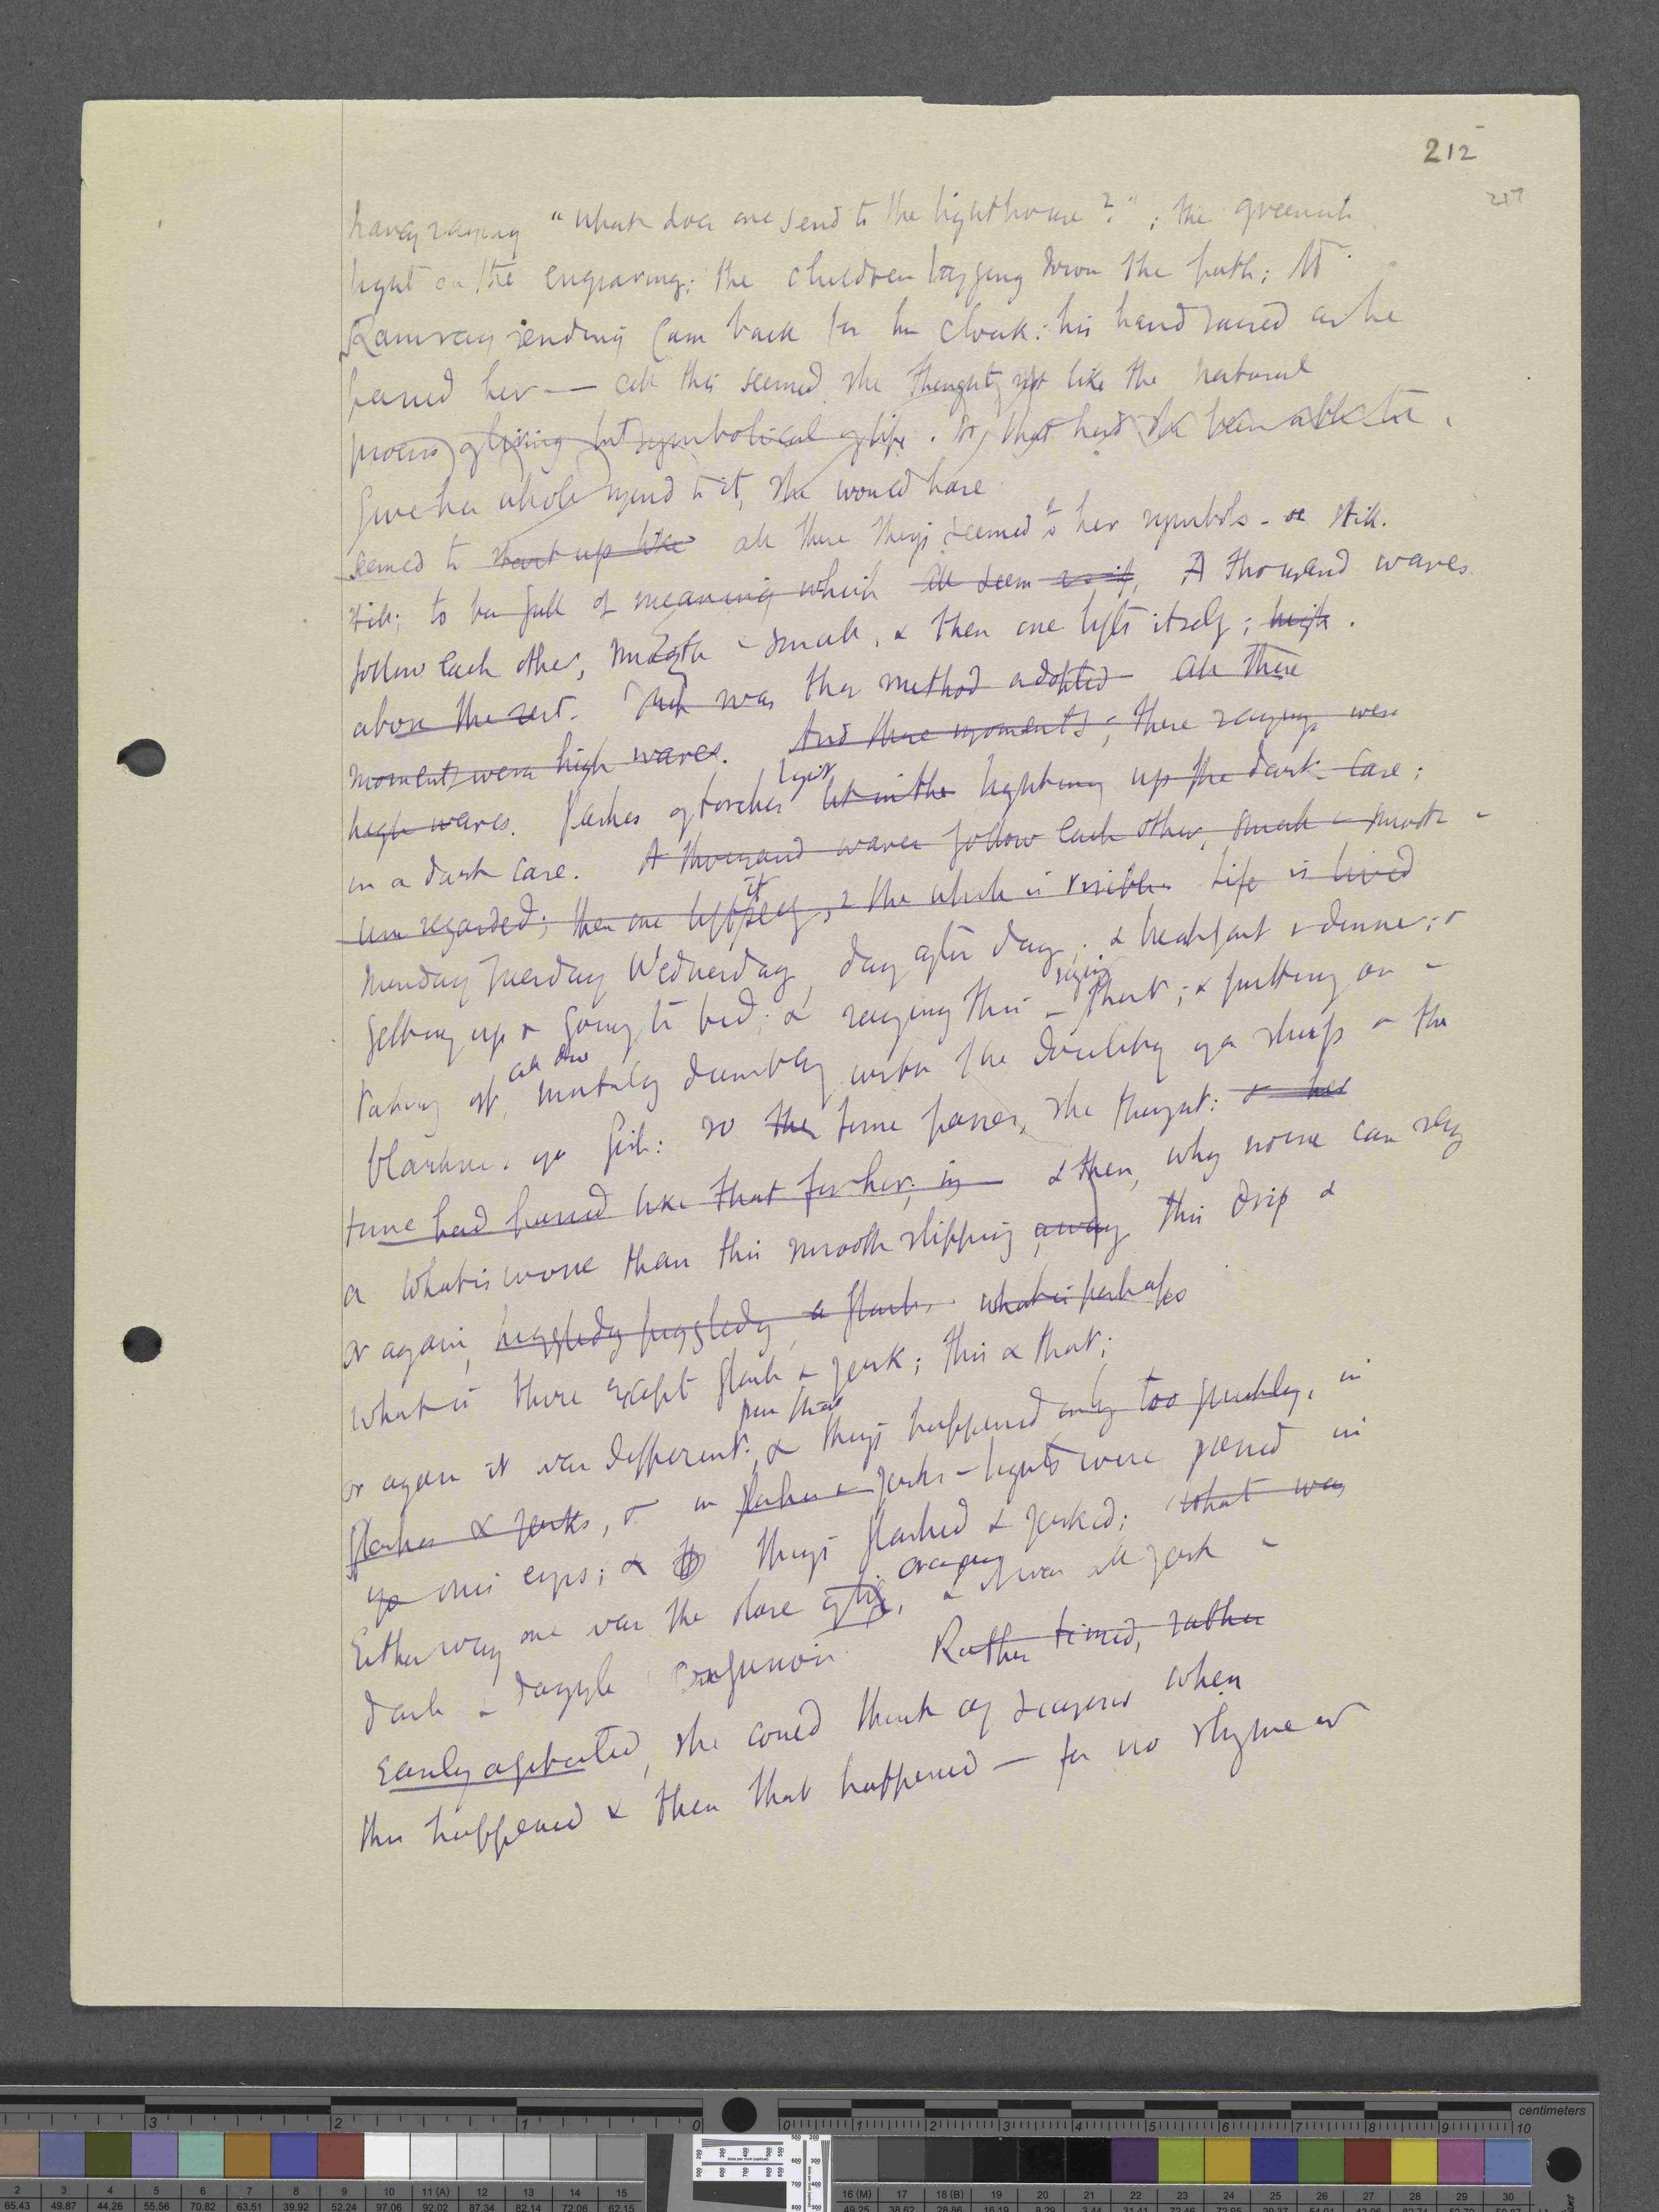 212
217
Nancy saying "What does one send to the Lighthouse?"; the greenish
light on the engraving; the children lagging down the path; Mr
Ramsay sending Cam back for her cloak: his hand raised as he
passed her — all this seemed she thought, not like the natural
process of living but symbolical of life. Or, that had she been able to
give her whole mind to it, she would have
seemed to start up like all these things seemed to her symbols - or still.
still; to be full of meaning which all seem as if, A thousand waves
follow each other, smooth & small, & then one lifts itself; high.
above the rest. was the method adopted All these
moments were high waves. And these moments; these sayings were
high waves. flashes of torches light let in the lighting up the dark cave;
in a dark cave. A thousand waves follow each other, small & smooth &
unregarded; then one lifts itself, & the whole is visible. Life is lived
Monday Tuesday Wednesday, day after day; & breakfast & dinner; &
getting up & going to bed; & saying this & saying that; & putting on &
taking off, all done mutely dumbly with the docility of a sheep & the
blankness of a fish: so the time passes, she thought: & her
time had passed like that for her; in & then, why no one can say
a what is worse than this smooth slipping away this drip &
or again, higgledy piggledy, a flash, what is perhaps
what is there except flash & jerk; this & that;
or again it was different; & things happened only too quickly, in
flashes & jerks, & in flashes & jerks - lights were passed in
of ones eyes; & things flashed & jerked; what was
Either way one was the slave of life, & it was all jerk &
dash & dazzle confusion. Rather timid, rather
easily agitated, she could think of seasons when
this happened & then that happened — for no rhyme or
centimeters